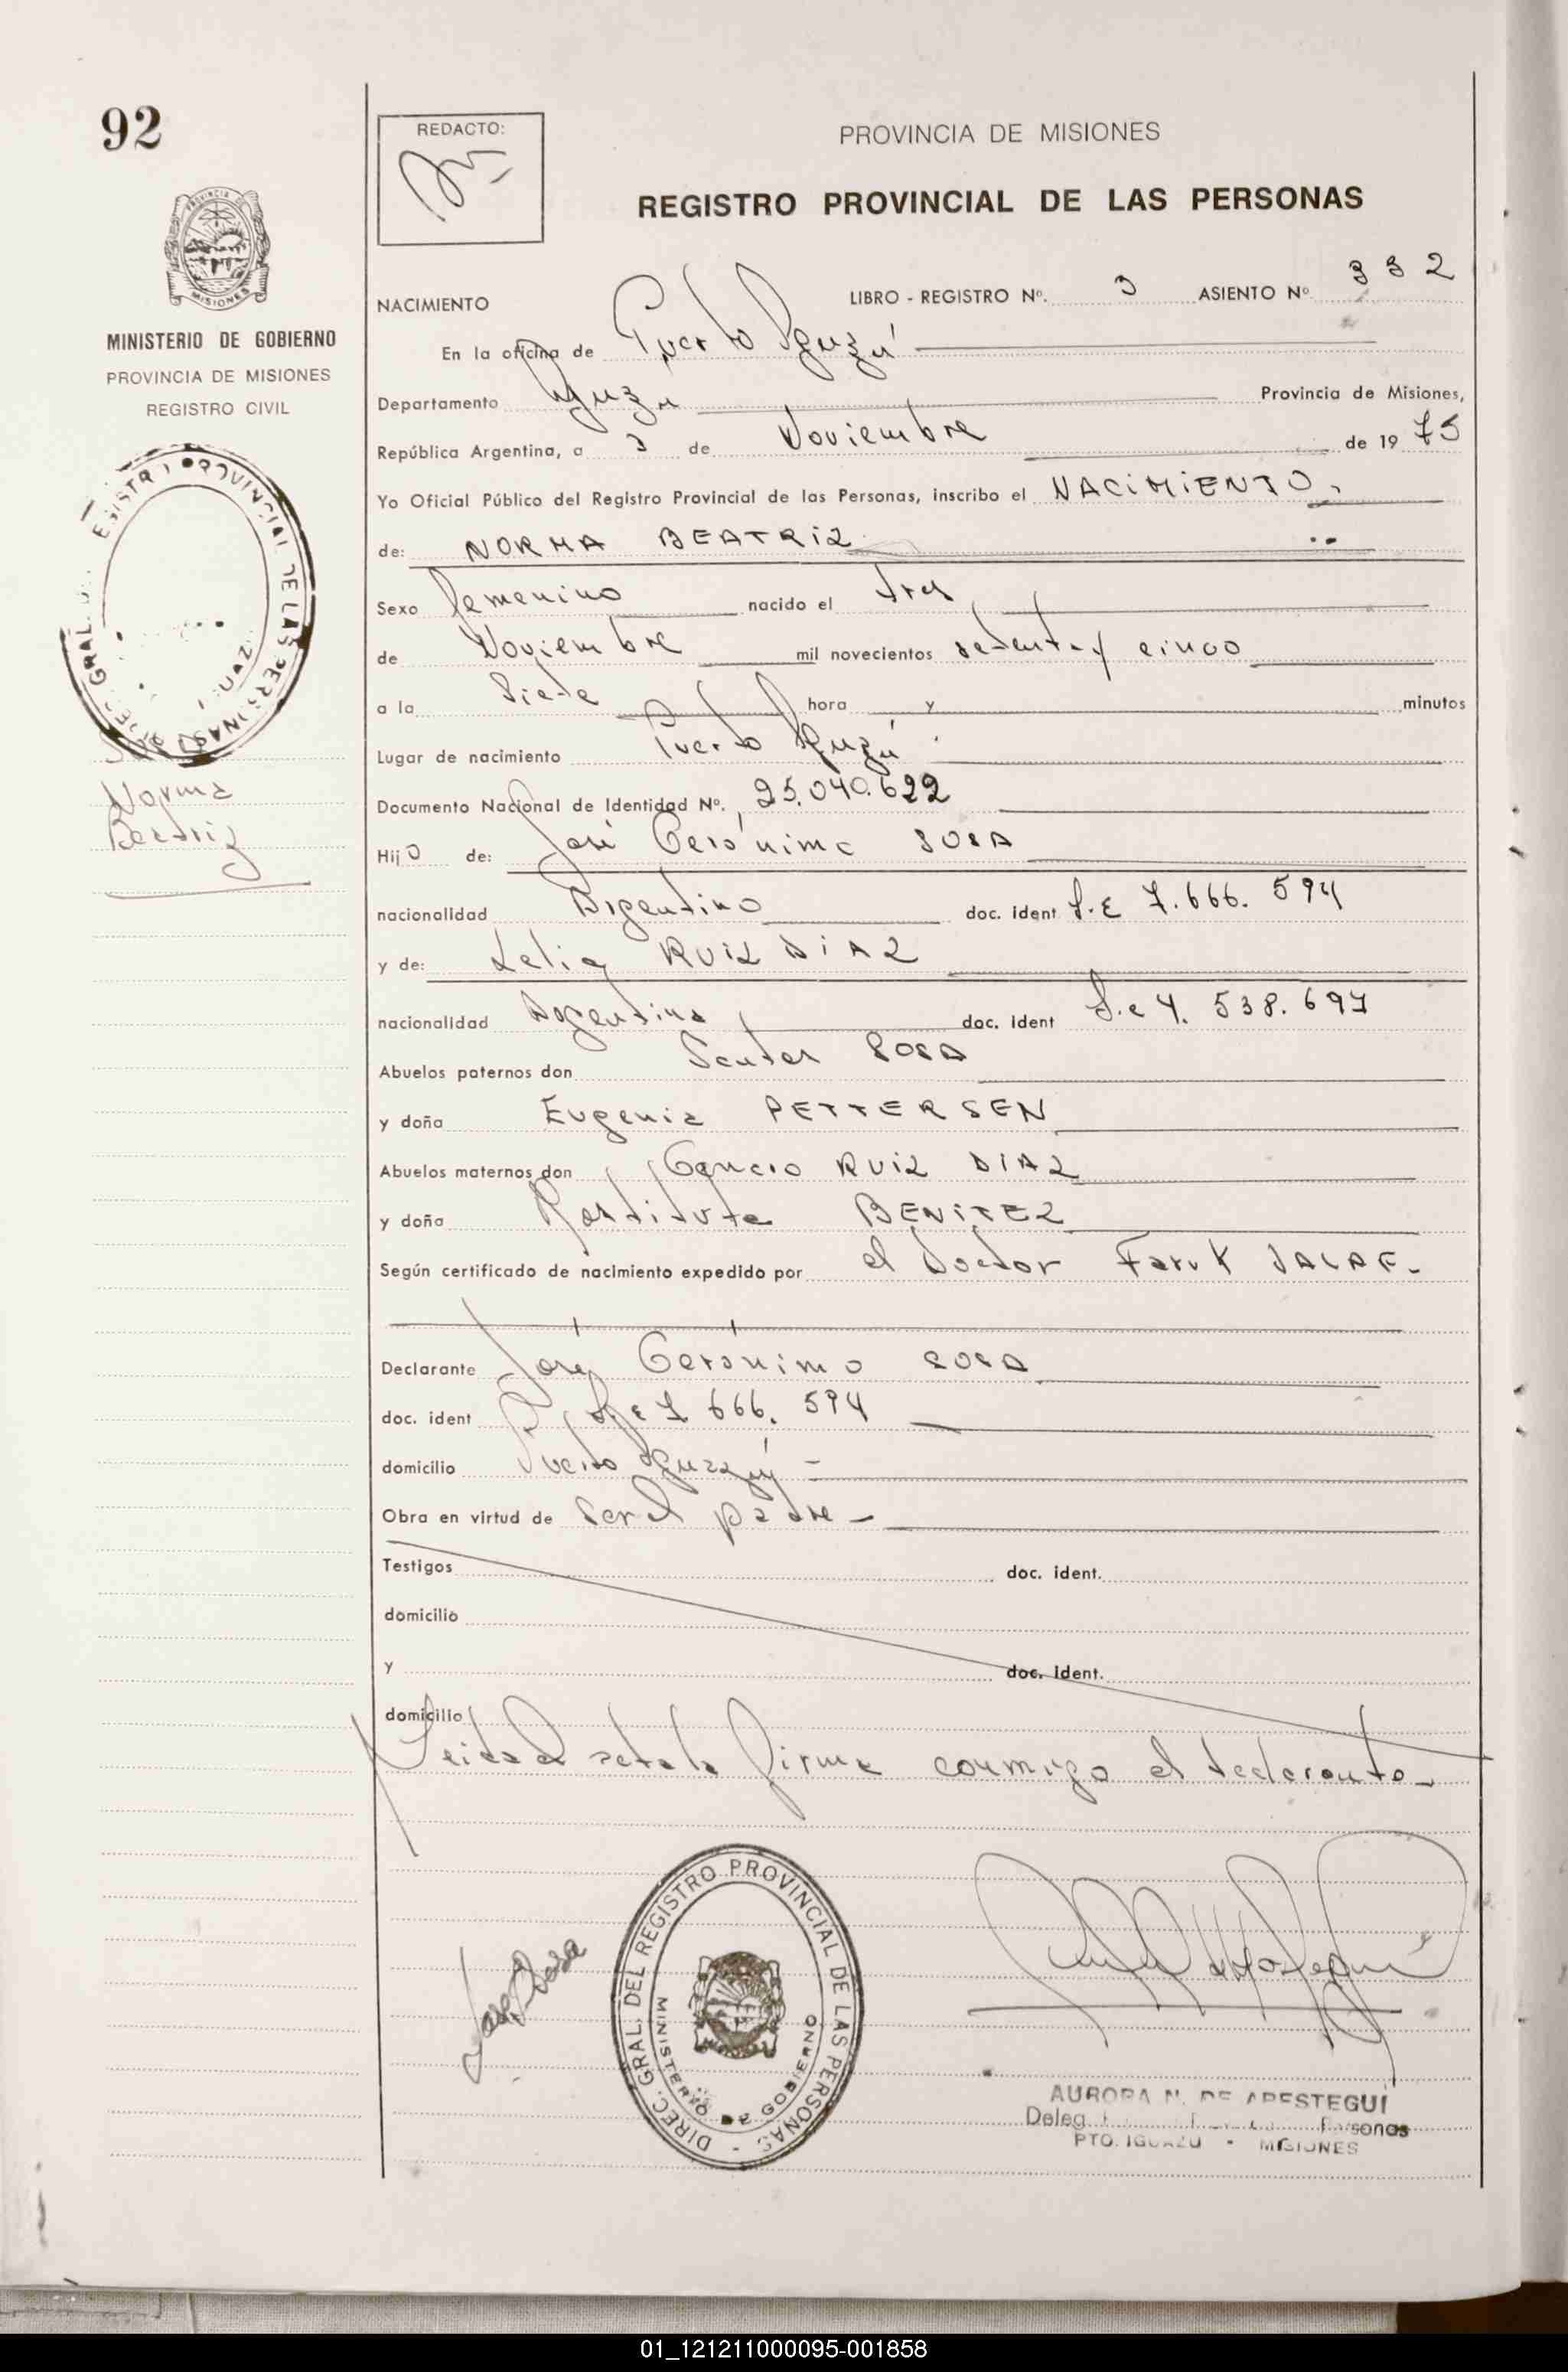 92
REDACTO:
PROVINCIA DE MISIONES
REGISTRO PROVINCIAL DE LAS PERSONAS
MISIONES
MINISTERIO DE GOBIERNO
PROVINCIA DE MISIONES
REGISTRO CIVIL
NACIMIENTO LIBRO - REGISTRO Nº. 3 ASIENTO Nº 332
En la oficina de Puerto Iguazú
Departamento Iguazú Provincia de Misiones,
República Argentina, a 3 de Noviembre de 1975
Yo Oficial Público del Registro Provincial de las Personas, inscribo el NACIMIENTO.
de: NORMA BEATRIZ
Sexo femenino nacido el tres
de Noviembre mil novecientos setenta y cinco
a la Siete hora y minutos
Lugar de nacimiento Puerto Iguazú
Documento Nacional de Identidad Nº. 25.040.622
Norma
Beatriz
Hijo de: José Gerónimo SOSA
nacionalidad Argentino doc. ident L.E 7.666.594
y de: Lelia RUIZ DIAZ
nacionalidad Argentina doc. ident L.C 4.538.697
Abuelos paternos don SOSA
y doña Eugenia PETTERSEN
Abuelos maternos don RUIZ DIAZ
y doña Restituta BENITEZ
Según certificado de nacimiento expedido por el Doctor Faruk JALAF.
Declarante José Gerónimo SOSA
doc. ident L.E 7.666.594
domicilio Puerto Iguazú
Obra en virtud de ser el padre
Testigos doc. ident.
domicilio
y doc. ident.
domicilio
Leida el acta la firma conmigo el declarante
Jose Sosa
DIREC. GRAL. DEL REGISTRO PROVINCIAL DE LAS PERSONAS -
MINISTERIO DE GOBIERNO
AURORA N. DE APESTEGUI
Deleg. Personas
PTO. IGUAZU - MISIONES
01_121211000095-001858